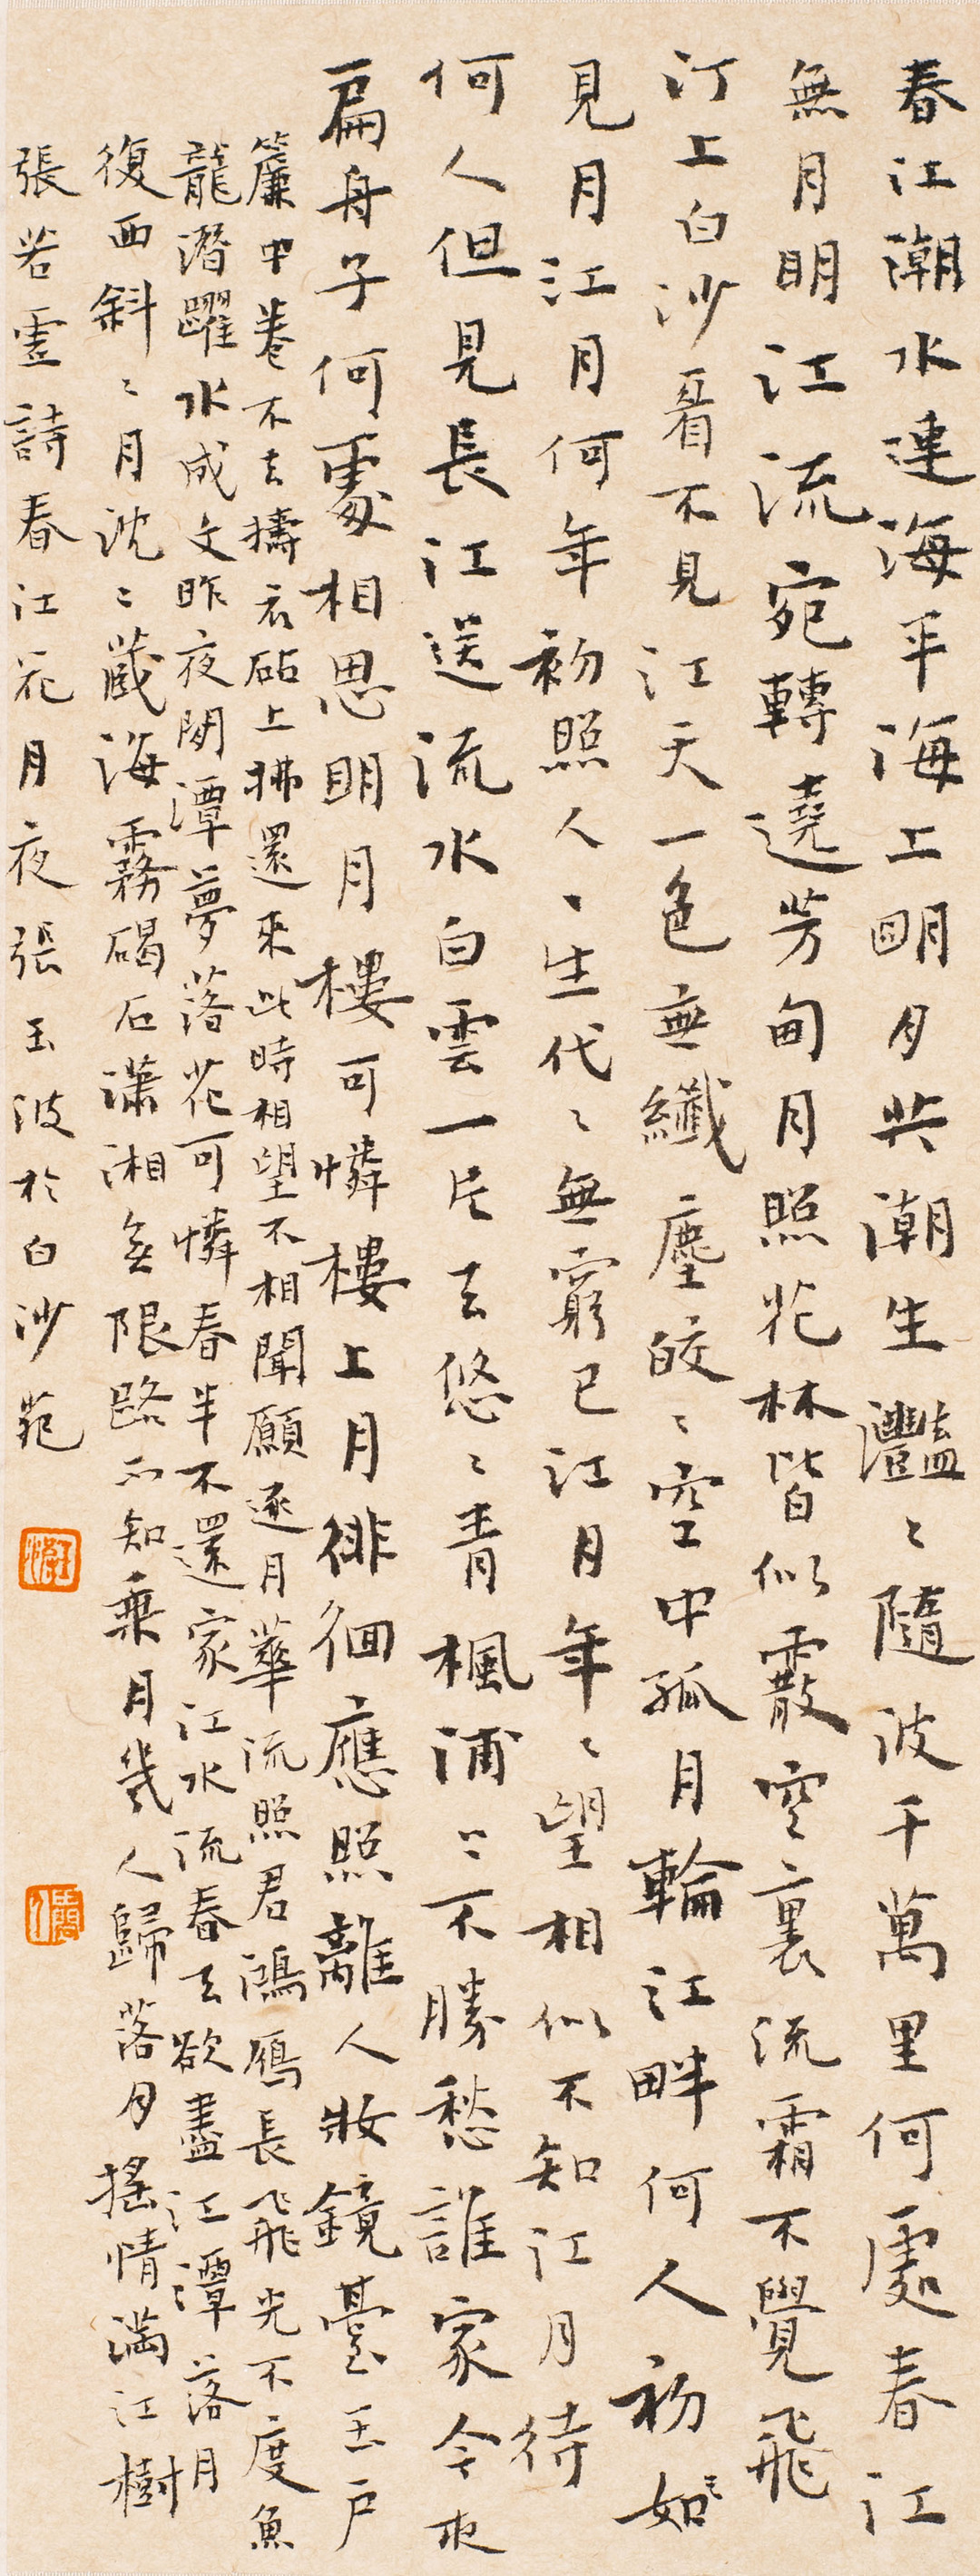 春江潮水連海平海上明月共潮生灩〻隨波千萬里何處春江
無月明江流宛轉遶芳甸月照花林皆似霰空裏流霜不覺飛
汀上白沙看不見江天一色無纖塵皎〻空中孤月輪江畔何人初如
見月江月何年初照人〻生代〻無窮已江月年〻望相似不知江月待
何人但見長江送流水白雲一片去悠〻青楓浦上不勝愁誰家今夜
扁舟子何處相思明月樓可憐樓上月徘徊應照離人妝鏡臺玉戶
簾中卷不去擣衣砧上拂還來此時相望不相聞願逐月華流照君鴻雁長飛光不度魚
龍潛躍水成文昨夜閑潭夢落花可憐春半不還家江水流春去欲盡江潭落月
復西斜〻月沈〻藏海霧碣石瀟湘無限路不知乘月幾人歸落月搖情滿江樹
張若虛詩春江花月夜張玉波於白沙苑